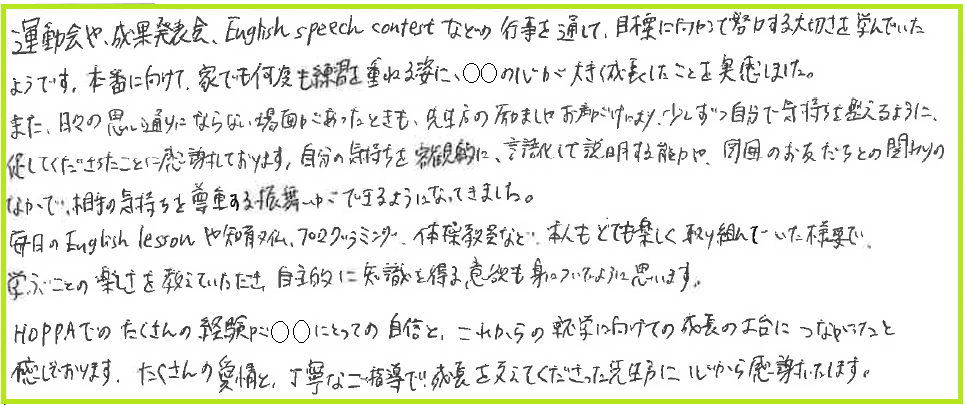 運動会や、成果発表会、English speech contest などの 行事を通して、目標に向かって努力する大切さを学んでいた
ようです。本番に向けて、家でも何度も練習を重ねる姿に、○○の心が大きく成長したことを実感しました。
また、日々の思い通りにならない場面があったときも、先生方の励ましやお声がけにより、少しずつ自分で気持ちを整えるように、
促してくださったことに感謝しております。自分の気持ちを客観的に、言語化して説明する能力や、周囲のお友だちとの関わりの
なかで、相手の気持ちを尊重する振舞いができるようになってきました。
毎日の English lesson や知育タイム、プログラミング、体操教室など、本人もとても楽しく取り組んでいた様子で、
学ぶことの楽しさを教えていただき、自主的に知識を得る意欲も身についたように思います。
HOPPAでの たくさんの経験が○○にとっての自信と、これからの就学に向けての成長の土台につながったと
感じております。たくさんの愛情と、丁寧なご指導で成長を支えてくださった先生方に 心から感謝いたします。